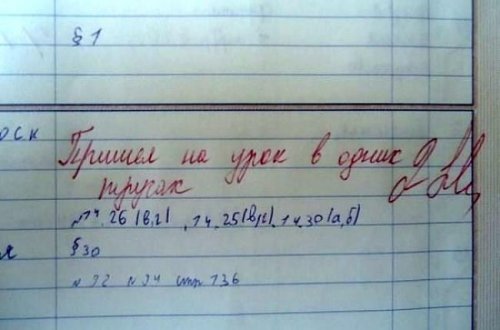 § 1
оск
Пришел на урок в одних
трусах
№ 14.26 (в,г), 14.25(в,г), 14.30(а,б)
§ 30
№ 92 № 94 стр 136